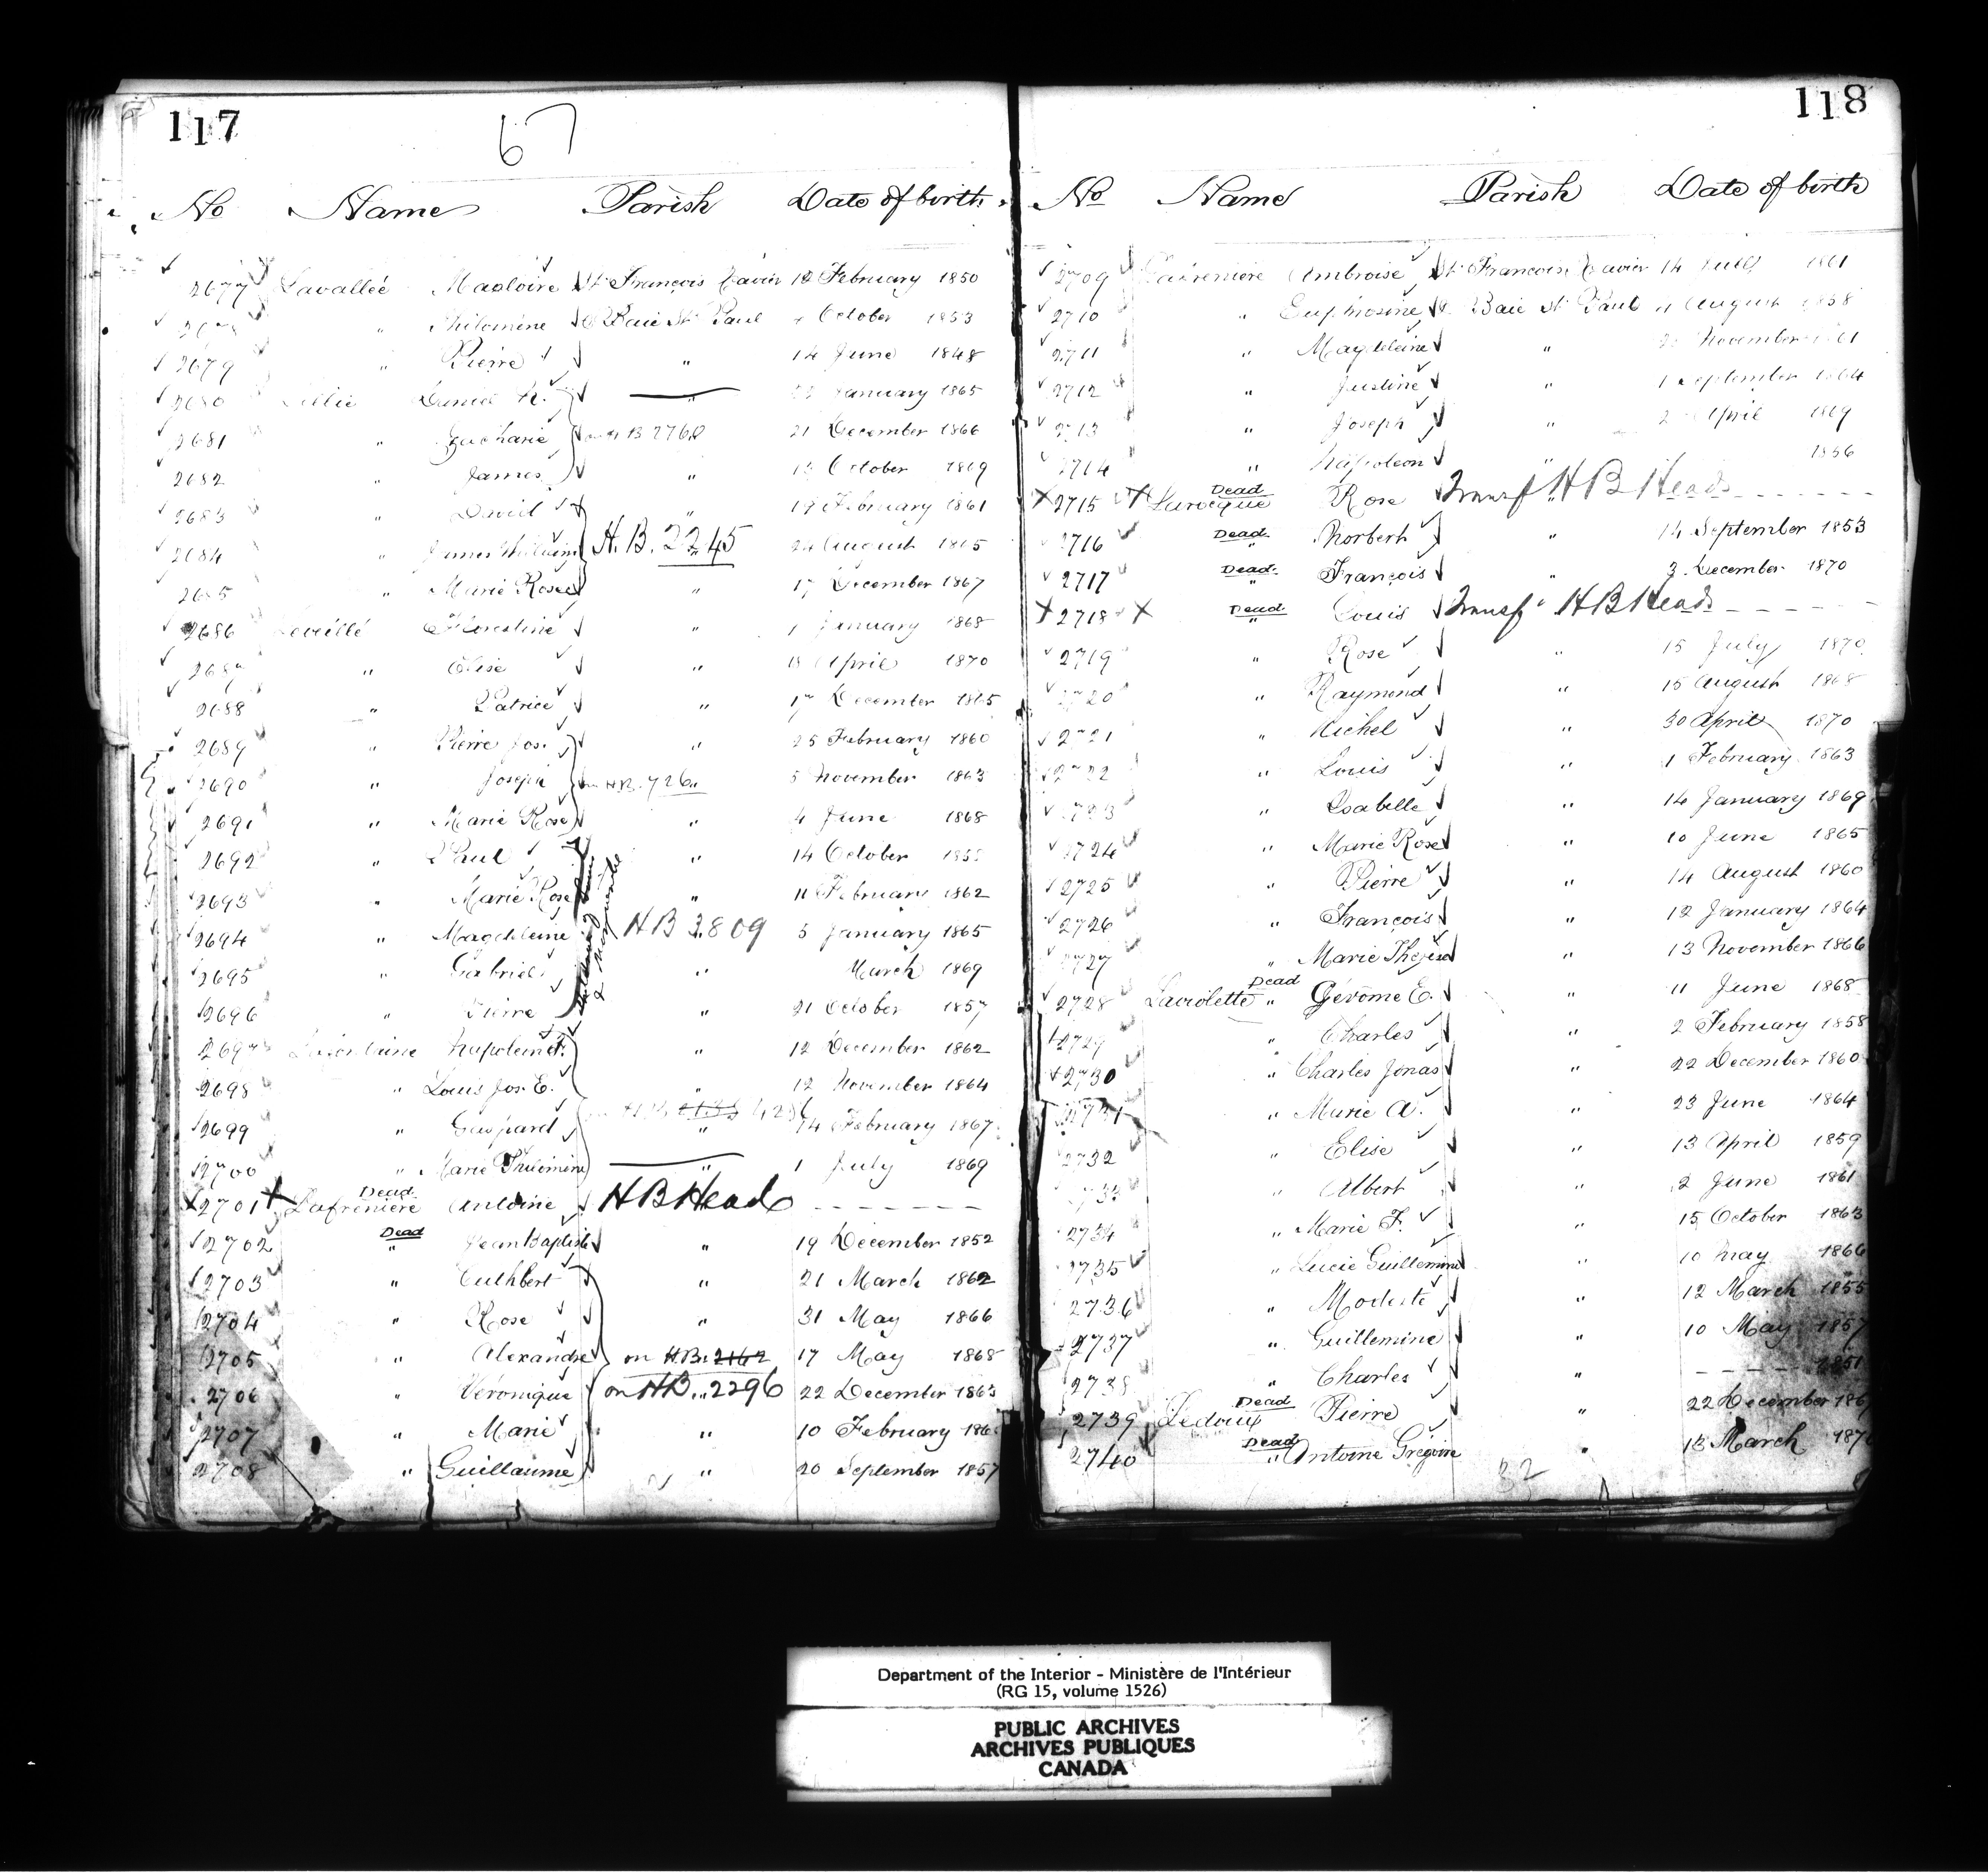 117
67
No Name Parish Date of birth
2677 Lavallée Magloire St François Xavier 12 February 1850
" Philomène Baie St Paul October 1853
2679 " Pierre " 14 June 1848
2680 Daniel " January 1865
2681 " Zacharie on H B 2760 21 December 1866
2682 " James " 13 October 1869
2683 " David " 19 February 1861
2684 " James William H. B. 2245 24 August 1865
2685 " Marie Rose " 17 December 1867
2686 Léveillé Florestine " 1 January 1868
268 " Elise " April 1870
2688 " Patrice " 17 December 1865
2689 " Pierre Jos. " 25 February 1860
2690 " Joseph on H.B. 726 " 5 November 1863
2691 " Marie Rose " 4 June 1868
2692 " Paul " 14 October
2693 " Marie Rose " 11 February 1862
2694 " Magdeleine H B 3809 5 January 1865
2695 " Gabriel " March 1869
2696 " Pierre " 21 October 1857
2697 Lafontaine Napoléon " 12 December 1862
2698 " Louis Jos. E. " 12 November 1864
2699 " Gaspard " 14 February 1867
2700 " Marie Philomène " 1 July 1869
2701 Dead Lafrenière Antoine H B Head - - - - - - -
2702 Dead " Jean Baptiste " 19 December 1852
2703 " Cuthbert " 21 March 1862
2704 " Rose " 31 May 1866
2705 " Alexandre on H.B. 2162 17 May 1868
2706 " Véronique on H B. " 2296 22 December 1863
2707 " Marie " 10 February
2708 " Guillaume " 20 September 1857
118
No Name Parish Date of birth
2709 Lafrenière Ambroise St François Xavier 14 1861
2710 " Euphrosine Baie St Paul August 1858
2711 " Magdeleine " November
2712 " Justine " 1 September 1864
2713 " Joseph " 2 April 1869
2714 " Napoléon " 1856
2715 Dead Larocque Rose Transf " H B Heads - - - - - - -
2716 Dead " Norbert " 14 September 1853
2717 Dead " François " 3 December 1870
2718 Dead " Louis Transf " H B Heads - - - - - - -
2719 " Rose " 15 July 1870
2720 " Raymond " 15 August 1868
2721 " Michel " 30 April 1870
2722 " Louis " 1 February 1863
2723 " Isabelle " 14 January 1869
2724 " Marie Rose " 10 June 1865
2725 " Pierre " 14 August 1860
2726 " François " 12 January 1864
2727 " Marie Thérèse " 13 November 1866
2728 Laviolette Dead " Gérôme E. " 11 June 1868
2729 " Charles " 2 February 1858
2730 " Charles Jonas " 22 December 1860
2731 " Marie A. " 23 June 1864
2732 " Elise " 13 April 1859
2733 " Albert " 2 June 1861
2734 " Marie F. " 15 October 1863
2735 " Lucie Guillemine " 10 May 1866
2736 " Modeste " 12 March 1855
2737 " Guillemine " 10 May 1857
2738 " Charles " - - - - 1851
2739 Ledoux Dead Pierre " 22 December
2740 Dead " Antoine Grégoire " 13 March
32
Department of the Interior - Ministère de l'Intérieur
(RG 15, volume 1526)
PUBLIC ARCHIVES
ARCHIVES PUBLIQUES
CANADA